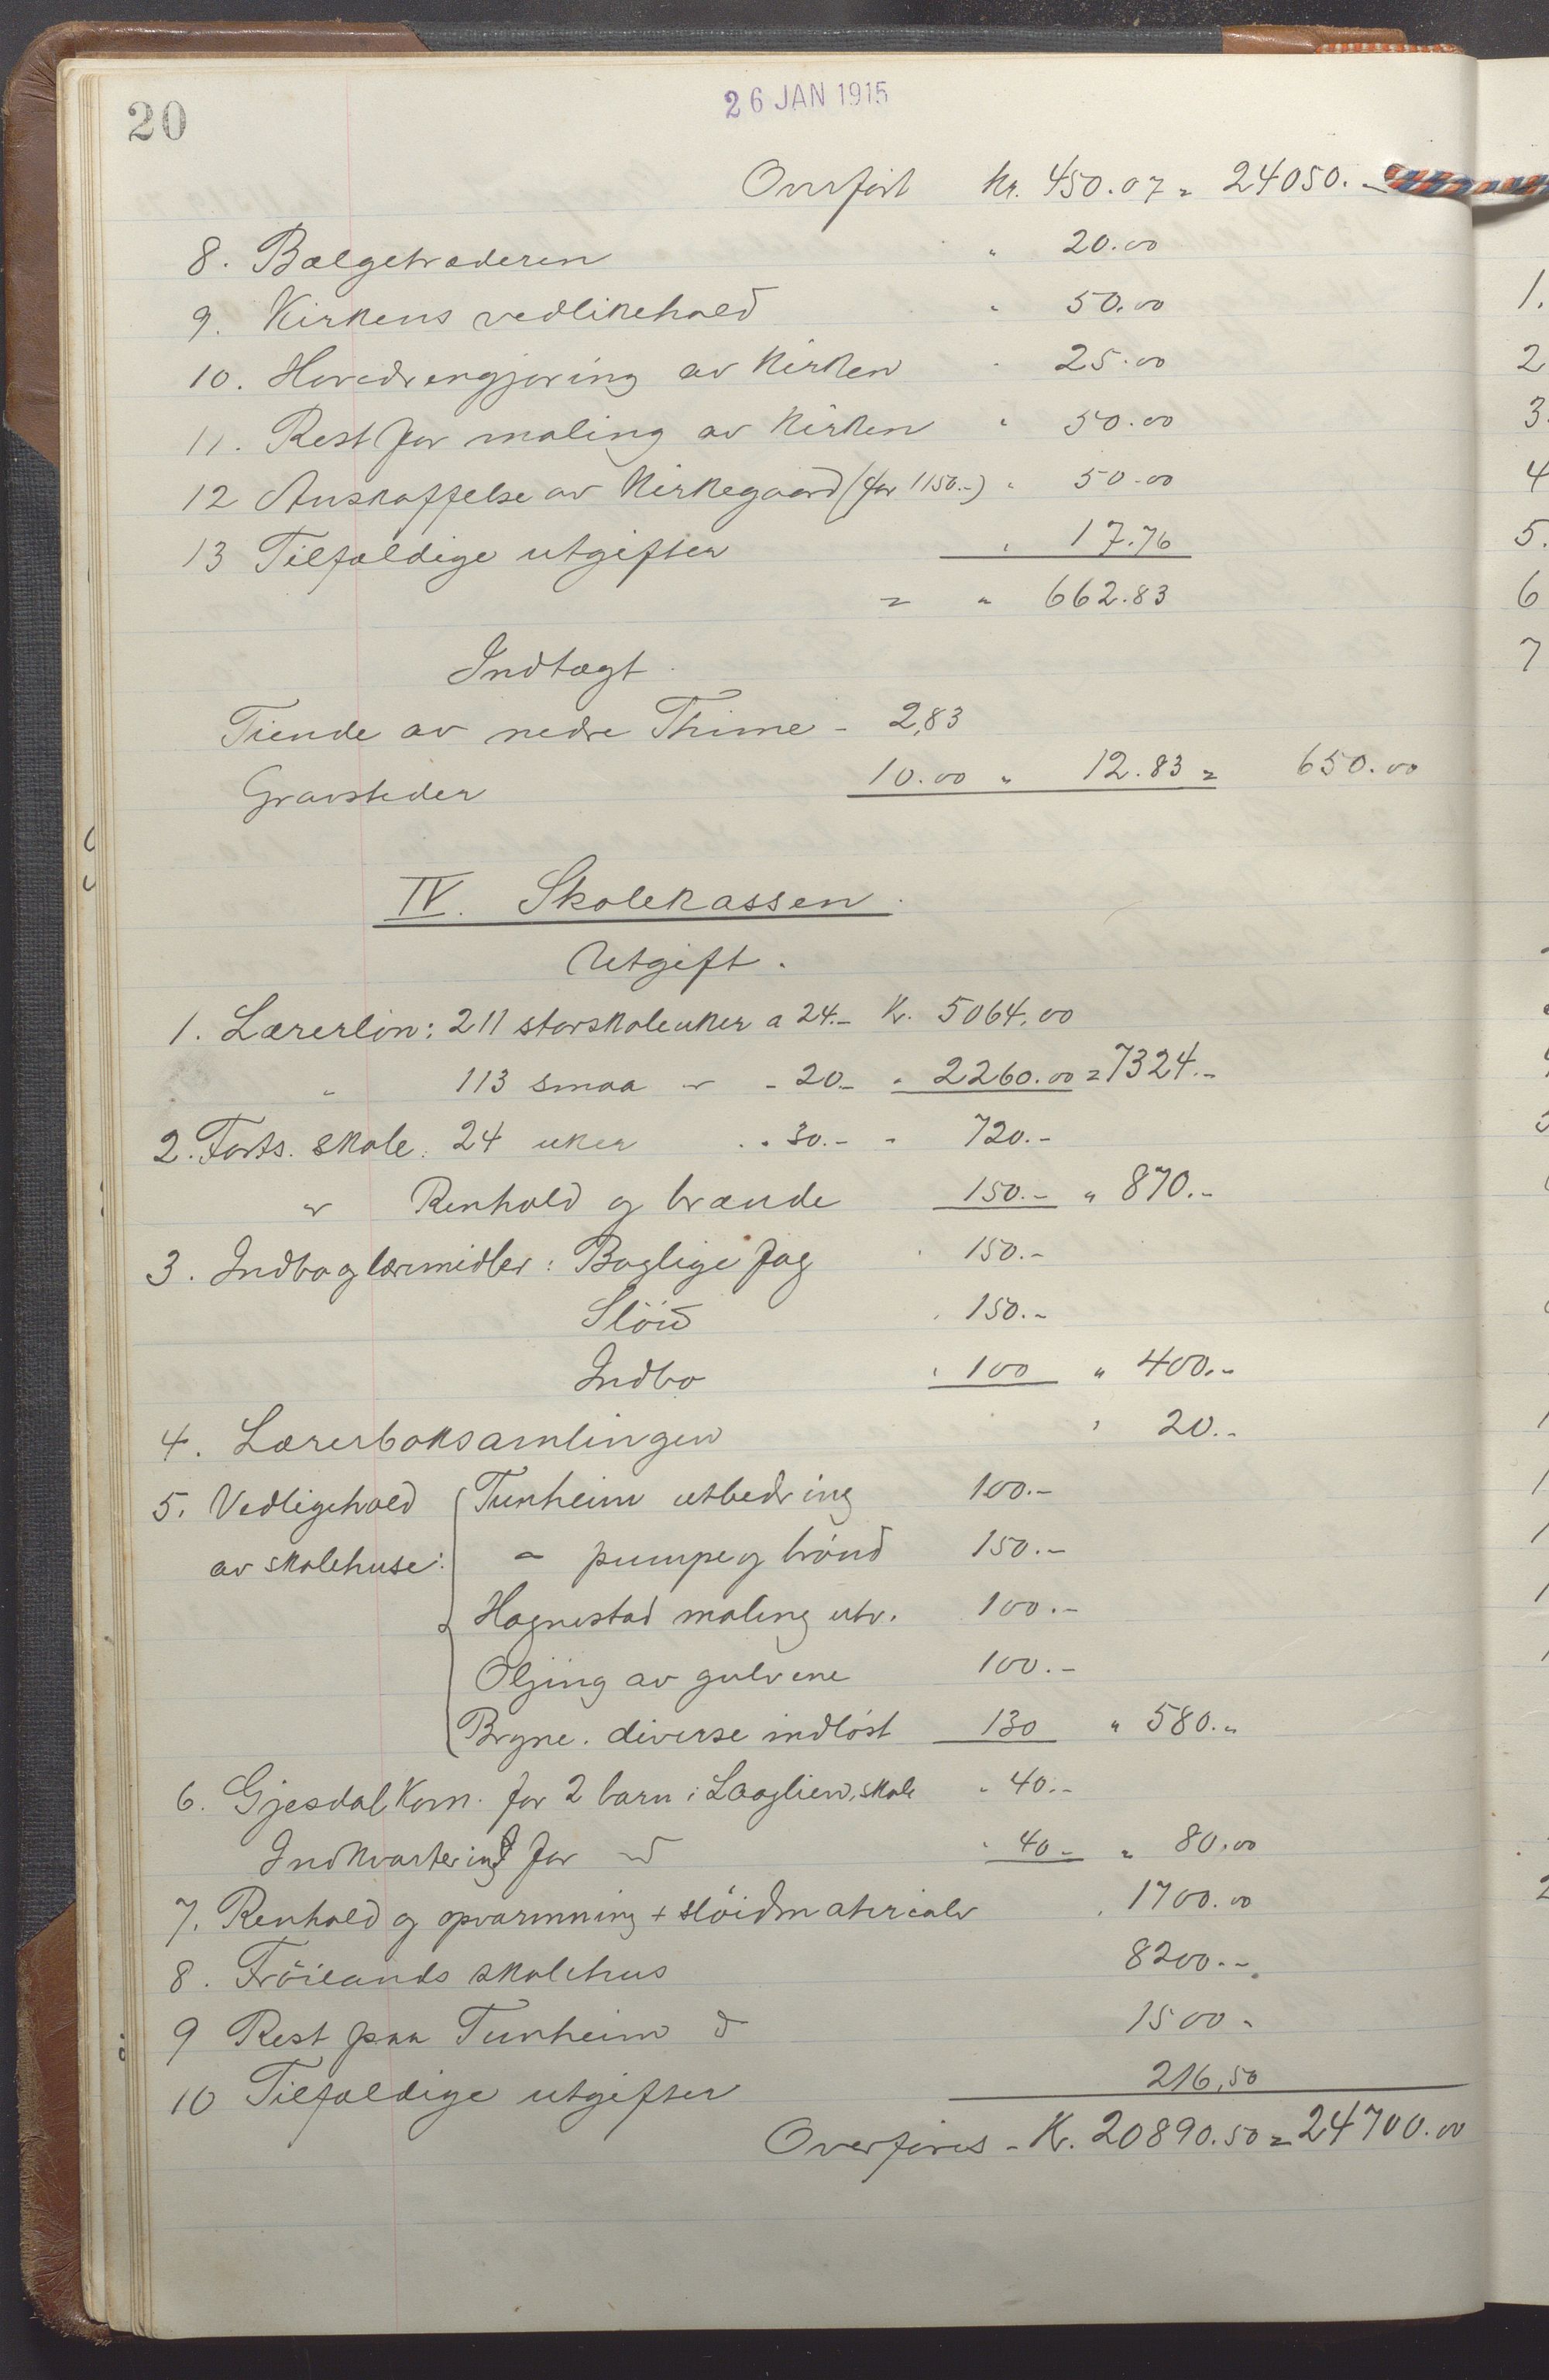 20
26 JAN 1915
Overført Kr. 450.07 = 24050.-
8. Bælgetræderen " 20.00
9. Kirkens vedlikehold " 50.00
10. Hovedrengjøring av kirken " 25.00
11. Rest for maling av kirken " 50.00
12 Anskaffelse av kirkegaard (før 1150.-) " 50.00
13 Tilfældige utgifter " 17.76
= " 662.83
Indtægt.
Tiende av nedre Thime - 2,83
Gravsteder 10.00 " 12.83 = 650.00
IV. Skolekassen.
Utgift.
1. Lærerløn: 211 storskoleuker a 24.- Kr. 5064.00
" 113 smaa " - 20.- " 2260.00 = 7324.-
2. Forts. skole. 24 uker " 30.- - 720.-
" Renhold og brænde 150.- " 870.-
3. Indbo og læremidler: Boglige fag " 150.-
Slöid " 150.-
Indbo " 100 " 400.-
4. Lærerboksamlingen " 20.-
5. Vedligehold Tunheim utbedring 100.-
av skolehuse: - pumpe og brønd 150.-
Hognestad maling utv. 100.-
Oljing av gulvene 100.-
Bryne. diverse indløst 130 " 580.-
6. Gjesdal Kom. for 2 barn i Laaglien, skole " 40.-
Indkvartering for d " 40 - " 80.00
7. Renhold og opvarmning + slöidmaterialer " 1700.00
8. Fröilands skolehus 8200.-
9 Rest paa Tunheim d 1500 -
10 Tilfældige utgifter 216,50
Overføres - Kr. 20890.50 = 24700.00
1.
2
3.
4
5.
6
7